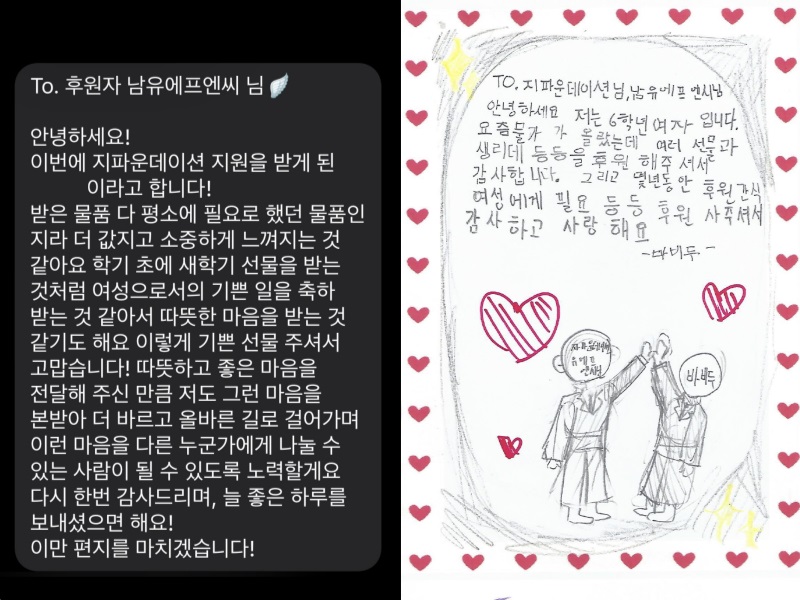 To. 후원자 남유에프엔씨 님🪽
안녕하세요!
이번에 지파운데이션 지원을 받게 된
이라고 합니다!
받은 물품 다 평소에 필요로 했던 물품인
지라 더 값지고 소중하게 느껴지는 것
같아요 학기 초에 새학기 선물을 받는
것처럼 여성으로서의 기쁜 일을 축하
받는 것 같아서 따뜻한 마음을 받는 것
같기도 해요 이렇게 기쁜 선물 주셔서
고맙습니다! 따뜻하고 좋은 마음을
전달해 주신 만큼 저도 그런 마음을
본받아 더 바르고 올바른 길로 걸어가며
이런 마음을 다른 누군가에게 나눌 수
있는 사람이 될 수 있도록 노력할게요
다시 한번 감사드리며, 늘 좋은 하루를
보내셨으면 해요!
이만 편지를 마치겠습니다!
TO. 지파운데이션님, 남유에프엔시님
안녕하세요 저는 6학년 여자 입니다.
요즘물가 가 올랐는데 여러 선물과
생리데 등등을 후원 해주셔서
감사합니다. 그리고 몇년동안 후원간식
여성에게 필요 등등 후원 사주셔서
감사하고 사랑 해요
-바비두-
지파운데이션
유에프
엔시님
바비두